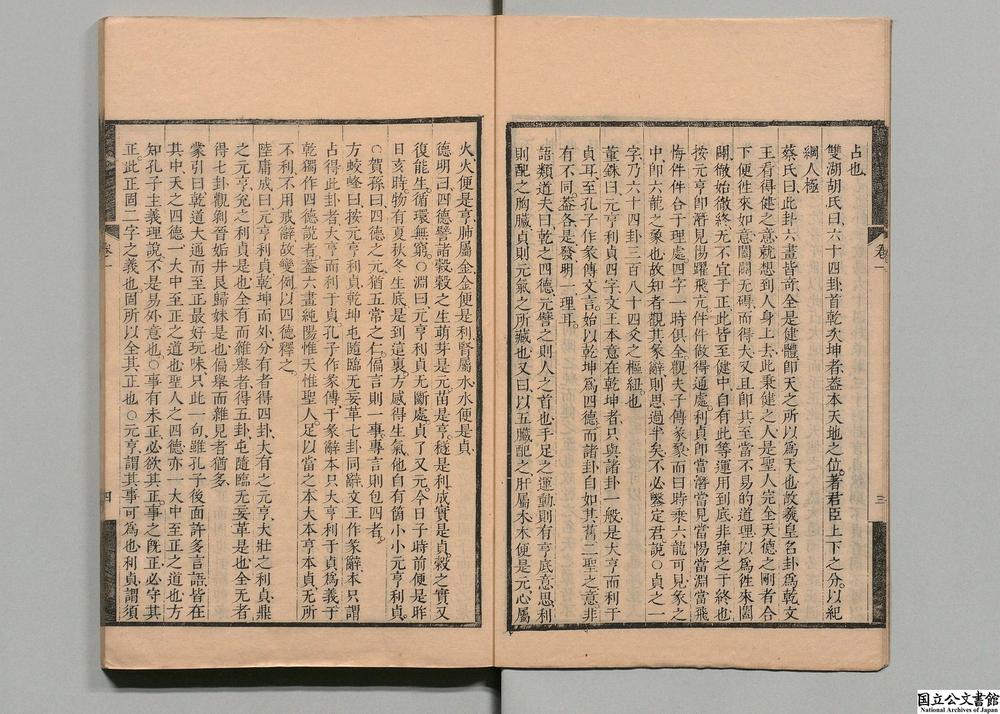 占也
雙湖胡氏曰六十四卦首乾次坤者蓋本天地之位著君臣上下之分以紀
綱人極
蔡氏曰此卦六畫皆奇全是健體卽天之所以爲天也故羲皇名卦爲乾文
王看得健之意就想到人身上去此秉健之人是聖人完全天德之剛者合
下便徃來如意闔闢无礙而得大又且卽其至當不易的道理以爲徃來闔
闢徹始徹終无不宜于正此皆至健中自有此等運用到底非強之于終也
按元亨卽潛見惕躍飛亢件件做得通處利貞卽當潛當見當惕當淵當飛
悔件件合于理處四字一時俱全觀夫子傳彖象而曰時乘六龍可見彖之
中卽六龍之象也故知者觀其彖辭則思過半矣不必鑿定君說○貞之一
字乃六十四卦三百八十四爻之樞紐也
董銖曰元亨利貞四字文王本意在乾坤者只與諸卦一般是大亨而利于
貞耳至孔子作彖傳文言始以乾坤爲四德而諸卦自如其舊二聖之意非
有不同蓋各是發明一理耳
語類道夫曰乾之四德元譬之則人之首也手足之運動則有亨底意思利
則配之胸臟貞則元氣之所藏也又曰以五臟配之肝屬木木便是元心屬
卷一
三
火火便是亨肺屬金金便是利腎屬水水便是貞
德明曰四德譬諸穀穀之生萌芽是元苗是亨穟是利成實是貞穀之實又
復能生循環無窮○淵曰元亨利貞无斷處貞了又元今日子時前便是昨
日亥時物有夏秋冬生底是到這裏方感得生氣他自有箇小小元亨利貞
○賀孫曰四德之元猶五常之仁偏言則一事專言則包四者
方蛟峰曰按元亨利貞乾坤屯隨臨无妄革七卦同辭文王作彖辭本只謂
占得此卦者大亨而利于貞孔子作彖傳于彖辭本只大亨利于貞爲義于
乾獨作四德說者蓋六畫純陽惟天惟聖人足以當之本大本亨本貞无所
不利不用戒辭故變例以四德釋之
陸庸成曰元亨利貞乾坤而外分有者得四卦大有之元亨大壯之利貞鼎
之元亨兌之利貞是也全有而雜舉者得五卦屯隨臨无妄革是也全无者
得七卦觀剝晉姤井艮歸妹是也偏舉而雜見者猶多
蒙引曰乾道大通而至正最好玩味只此一句雖孔子後面許多言語皆在
其中天之四德一大中至正之道也聖人之四德亦一大中至正之道也方
知孔子主義理說不是易外意也○事有未正必欲其正事之旣正必守其
正此正固二字之義也固所以全其正也○元亨謂其事可爲也利貞謂須
卷一
四
国立公文書館
National Archives of Japan